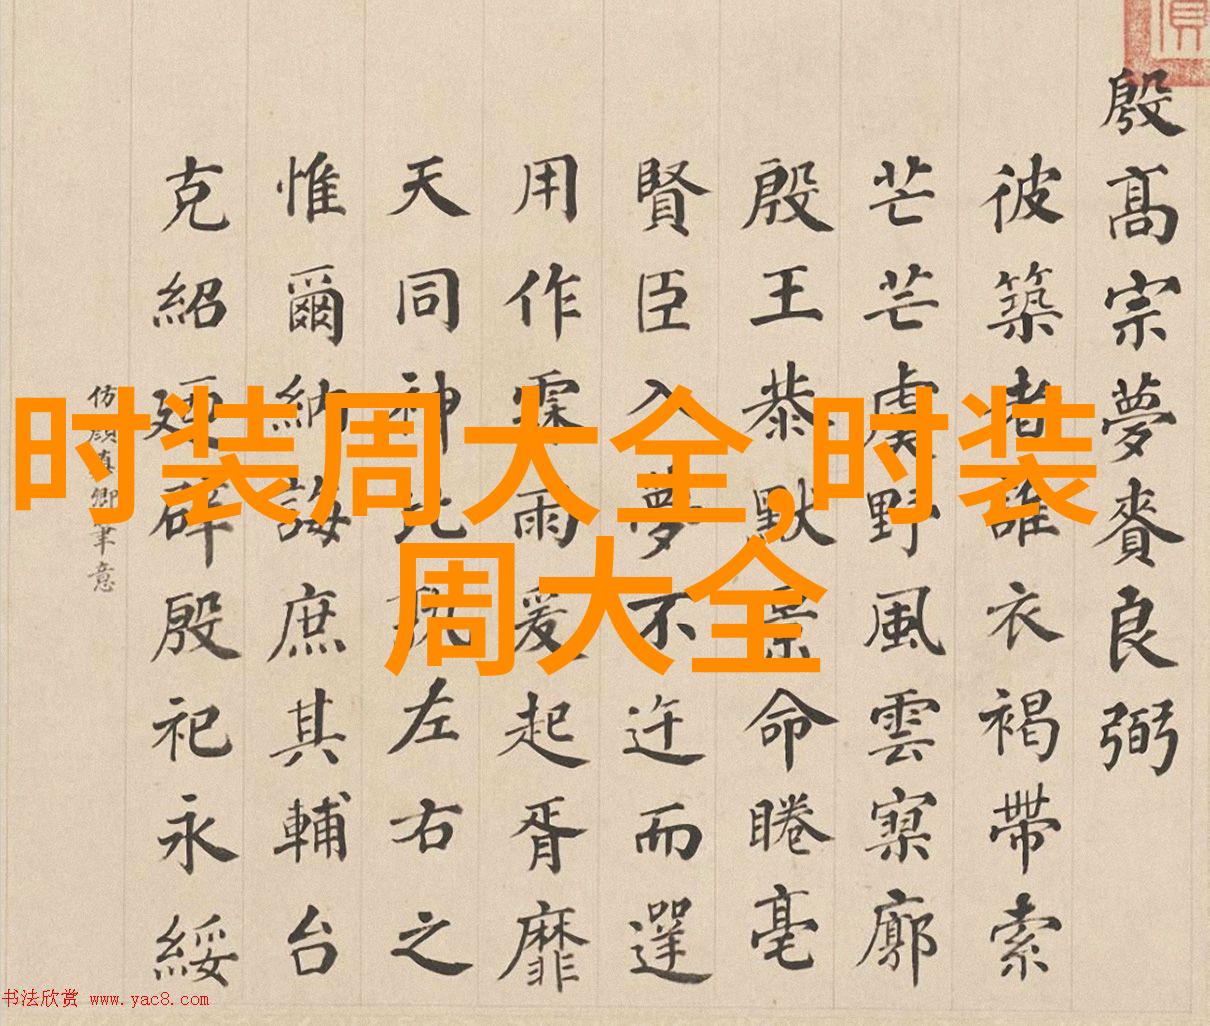 殷髙宗夢賚良弼
彼築者誰衣褐帶索
芒芒虞野風雲寥廓
殷王恭默命睠亳
賢臣入夢不迕而遻
用作霖雨爰起胥靡
天同神比左右之
惟爾納誨庶其輔台
克紹廼辟殷祀永綏
仿顏真卿筆意
时装周大全,时装
周大全
书法欣赏 www.yac8.com